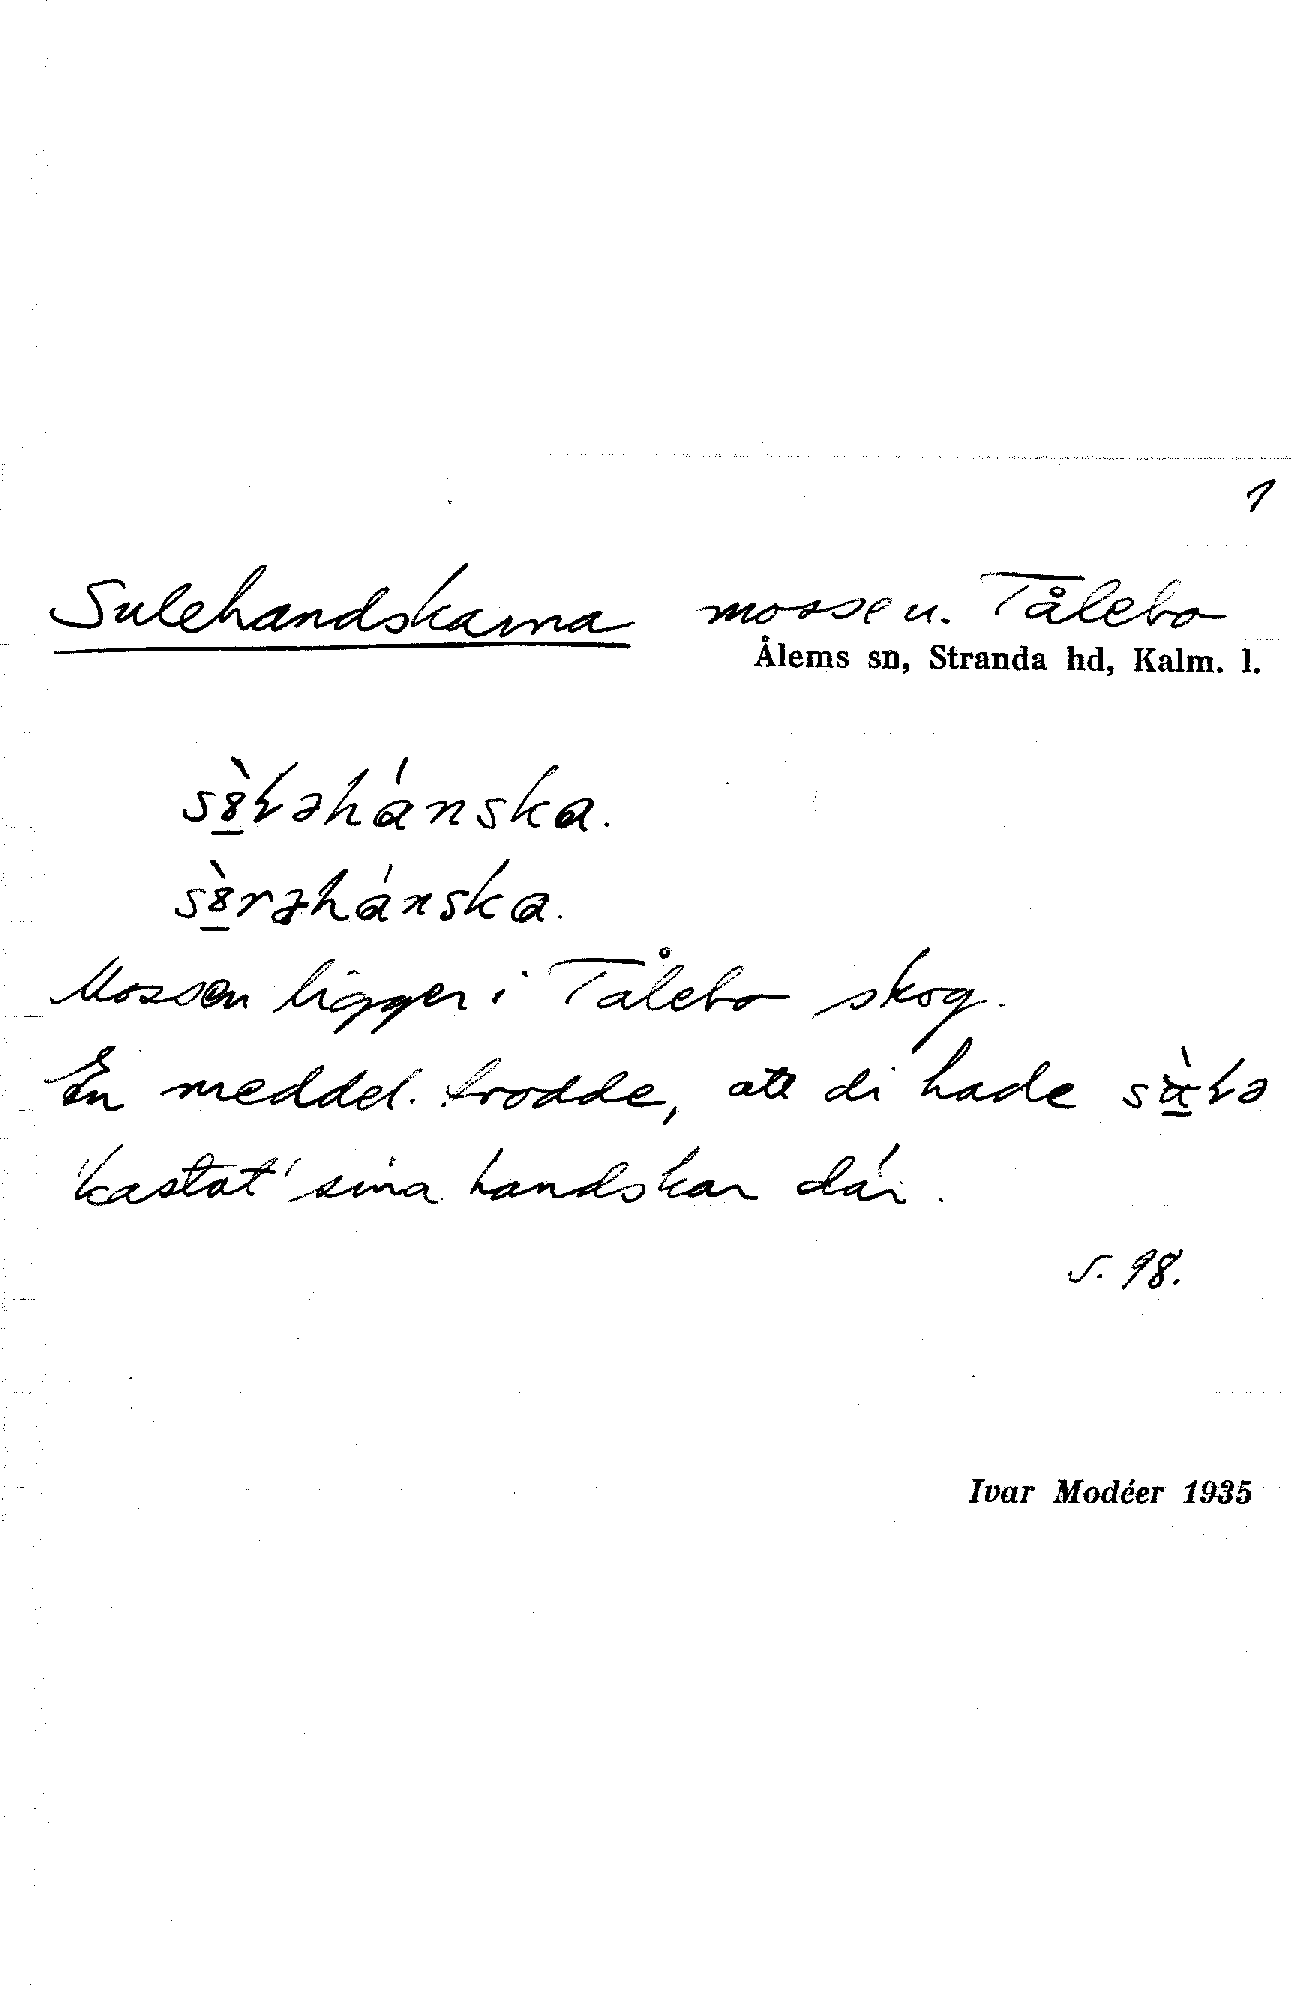 1
Sulehandskarna mosse u. Tålebo
Ålems sn, Stranda hd, Kalm. l.
Mossen ligger i Tålebo skog.
En meddel. trodde, att di hade
'kastat' sina handskar där.
s. 98.
Ivar Modéer 1935